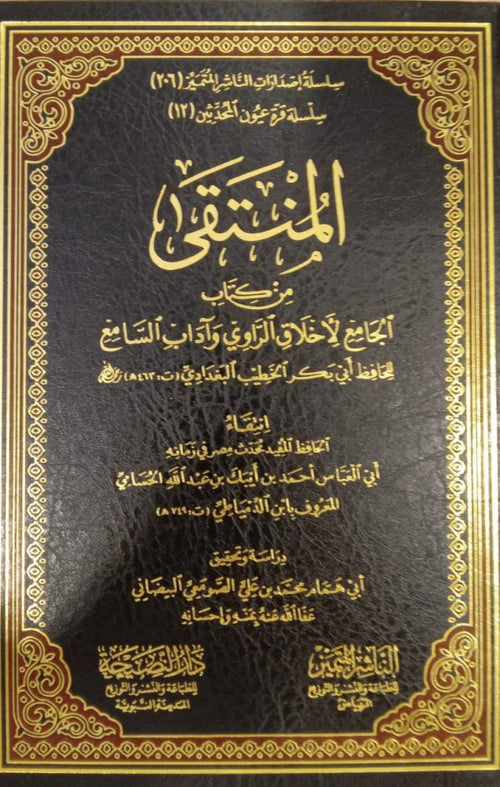 سلسلة إصدارات الناشر المتميز (٢٠٦)
سلسلة قرة عيون المحدثين (١٢)
المُنْتَقَى
مِنْ كِتَابِ
الجَامِعِ لأَخْلَاقِ الرَّاوِي وَآدَابِ السَّامِعِ
للحافظ أبي بكر الخطيب البغدادي (ت: ٤٦٣هـ) رحمه الله
انتقاء
الحافظ المفيد محدث مصر في زمانه
أبي العباس أحمد بن أيبك بن عبد الله الحسامي
المعروف بابن الدمياطي (ت: ٧٤٩هـ)
دراسة وتحقيق
أبي همام محمد بن علي الصومعي البيضاني
عفا الله عنه بمنه وإحسانه
الناشر المتميز
للطباعة والنشر والتوزيع
الرياض
دار النصيحة
للطباعة والنشر والتوزيع
المدينة النبوية